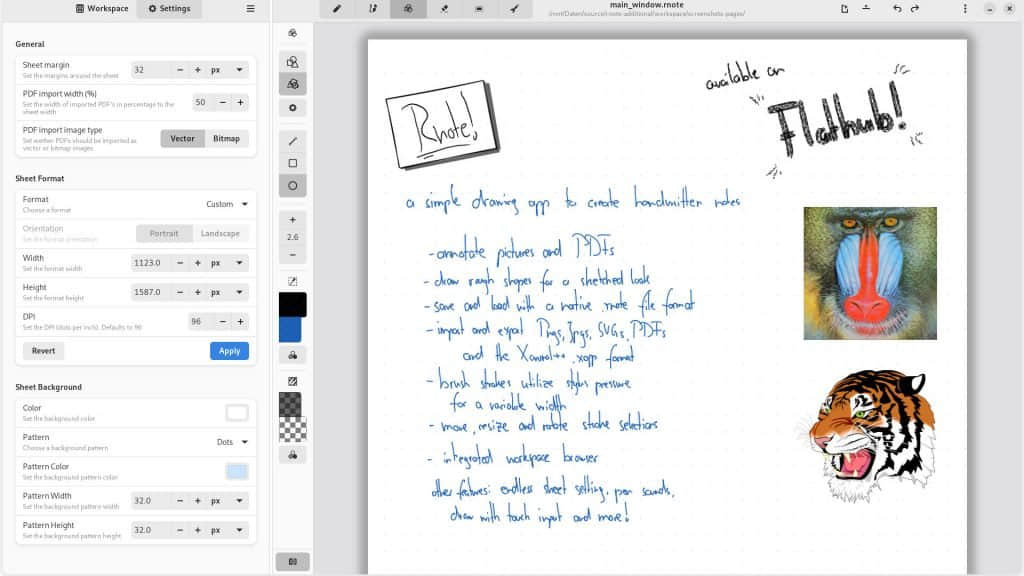 Workspace
Settings
main_window.rnote
/mnt/Daten/source/rnote-additional/workspace/screenshots-pages/
General
Sheet margin
Set the margins around the sheet
32 − + px
PDF import width (%)
Set the width of imported PDF's in percentage to the sheet width
50 − +
PDF import image type
Set wether PDFs should be imported as vector or bitmap images
Vector Bitmap
Sheet Format
Format
Choose a format
Custom
Orientation
Set the format orientation
Portrait Landscape
Width
Set the format width
1123.0 − + px
Height
Set the format height
1587.0 − + px
DPI
Set the DPI (dots per inch). Defaults to 96
96 − +
Revert Apply
Sheet Background
Color
Set the background color
Pattern
Choose a background pattern
Dots
Pattern Color
Set the background pattern color
Pattern Width
Set the background pattern width
32.0 − + px
Pattern Height
Set the background pattern height
32.0 − + px
+
2.6
−
Rnote!
available on
Flathub!
a simple drawing app to create handwritten notes
- annotate pictures and PDFs
- draw rough shapes for a sketched look
- save and load with a native .rnote file format
- import and export Pngs, Jpgs, SVGs, PDFs
and the Xournal++ .xopp format
- brush strokes utilize stylus pressure
for a variable width
- move, resize and rotate stroke selections
- integrated workspace browser
other features: endless sheet setting, pen sounds,
draw with touch input and more!